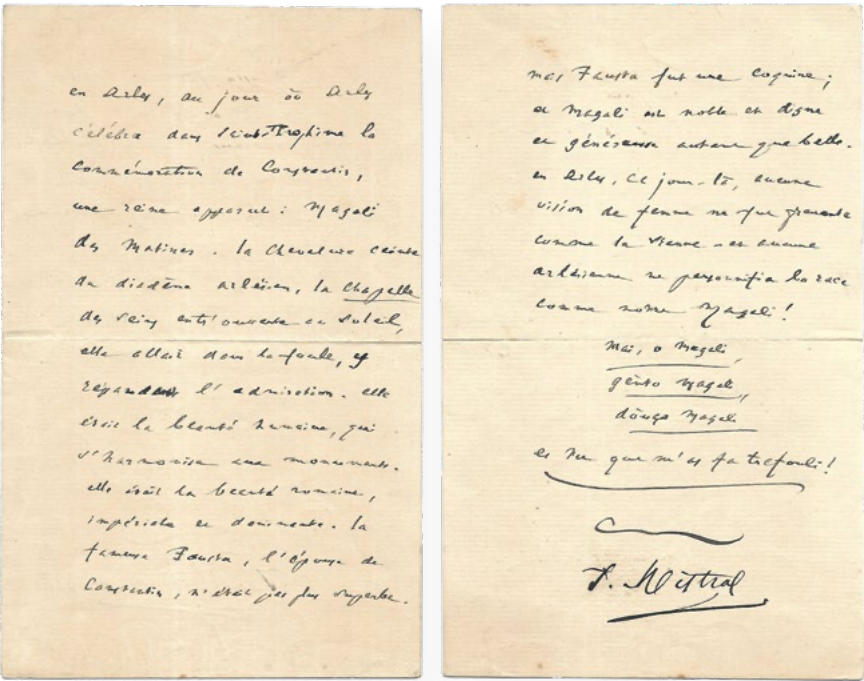 en Arles, au jour où Arles
célébra dans Saint Trophime la
commémoration de Constantin,
une reine apparut : Magali
des Matines. la chevelure ceinte
du diadème arlésien, la chapelle
des seins entr'ouverte au soleil,
elle allait dans la foule, y
répandant l'admiration. elle
était la beauté humaine, qui
s'harmonise aux monuments.
elle était la beauté romaine,
impériale et dominante. la
fameuse Fausta, l'épouse de
Constantin, n'était pas plus superbe.
mais Fausta fut une coquine;
et Magali est noble et digne
et généreuse autant que belle.
en Arles, ce jour-là, aucune
vision de femme ne fut
comme la sienne - et aucune
arlésienne ne personnifia la race
comme notre Magali!
Mai, o Magali,
gènto Magali,
douço Magali
es tu que m'as fa trefouli!
F. Mistral